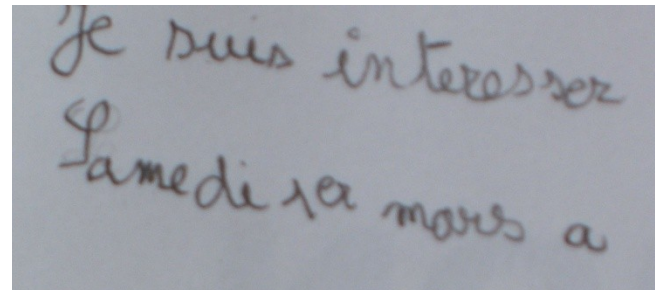 Je suis interesser
Samedi 1er mars a